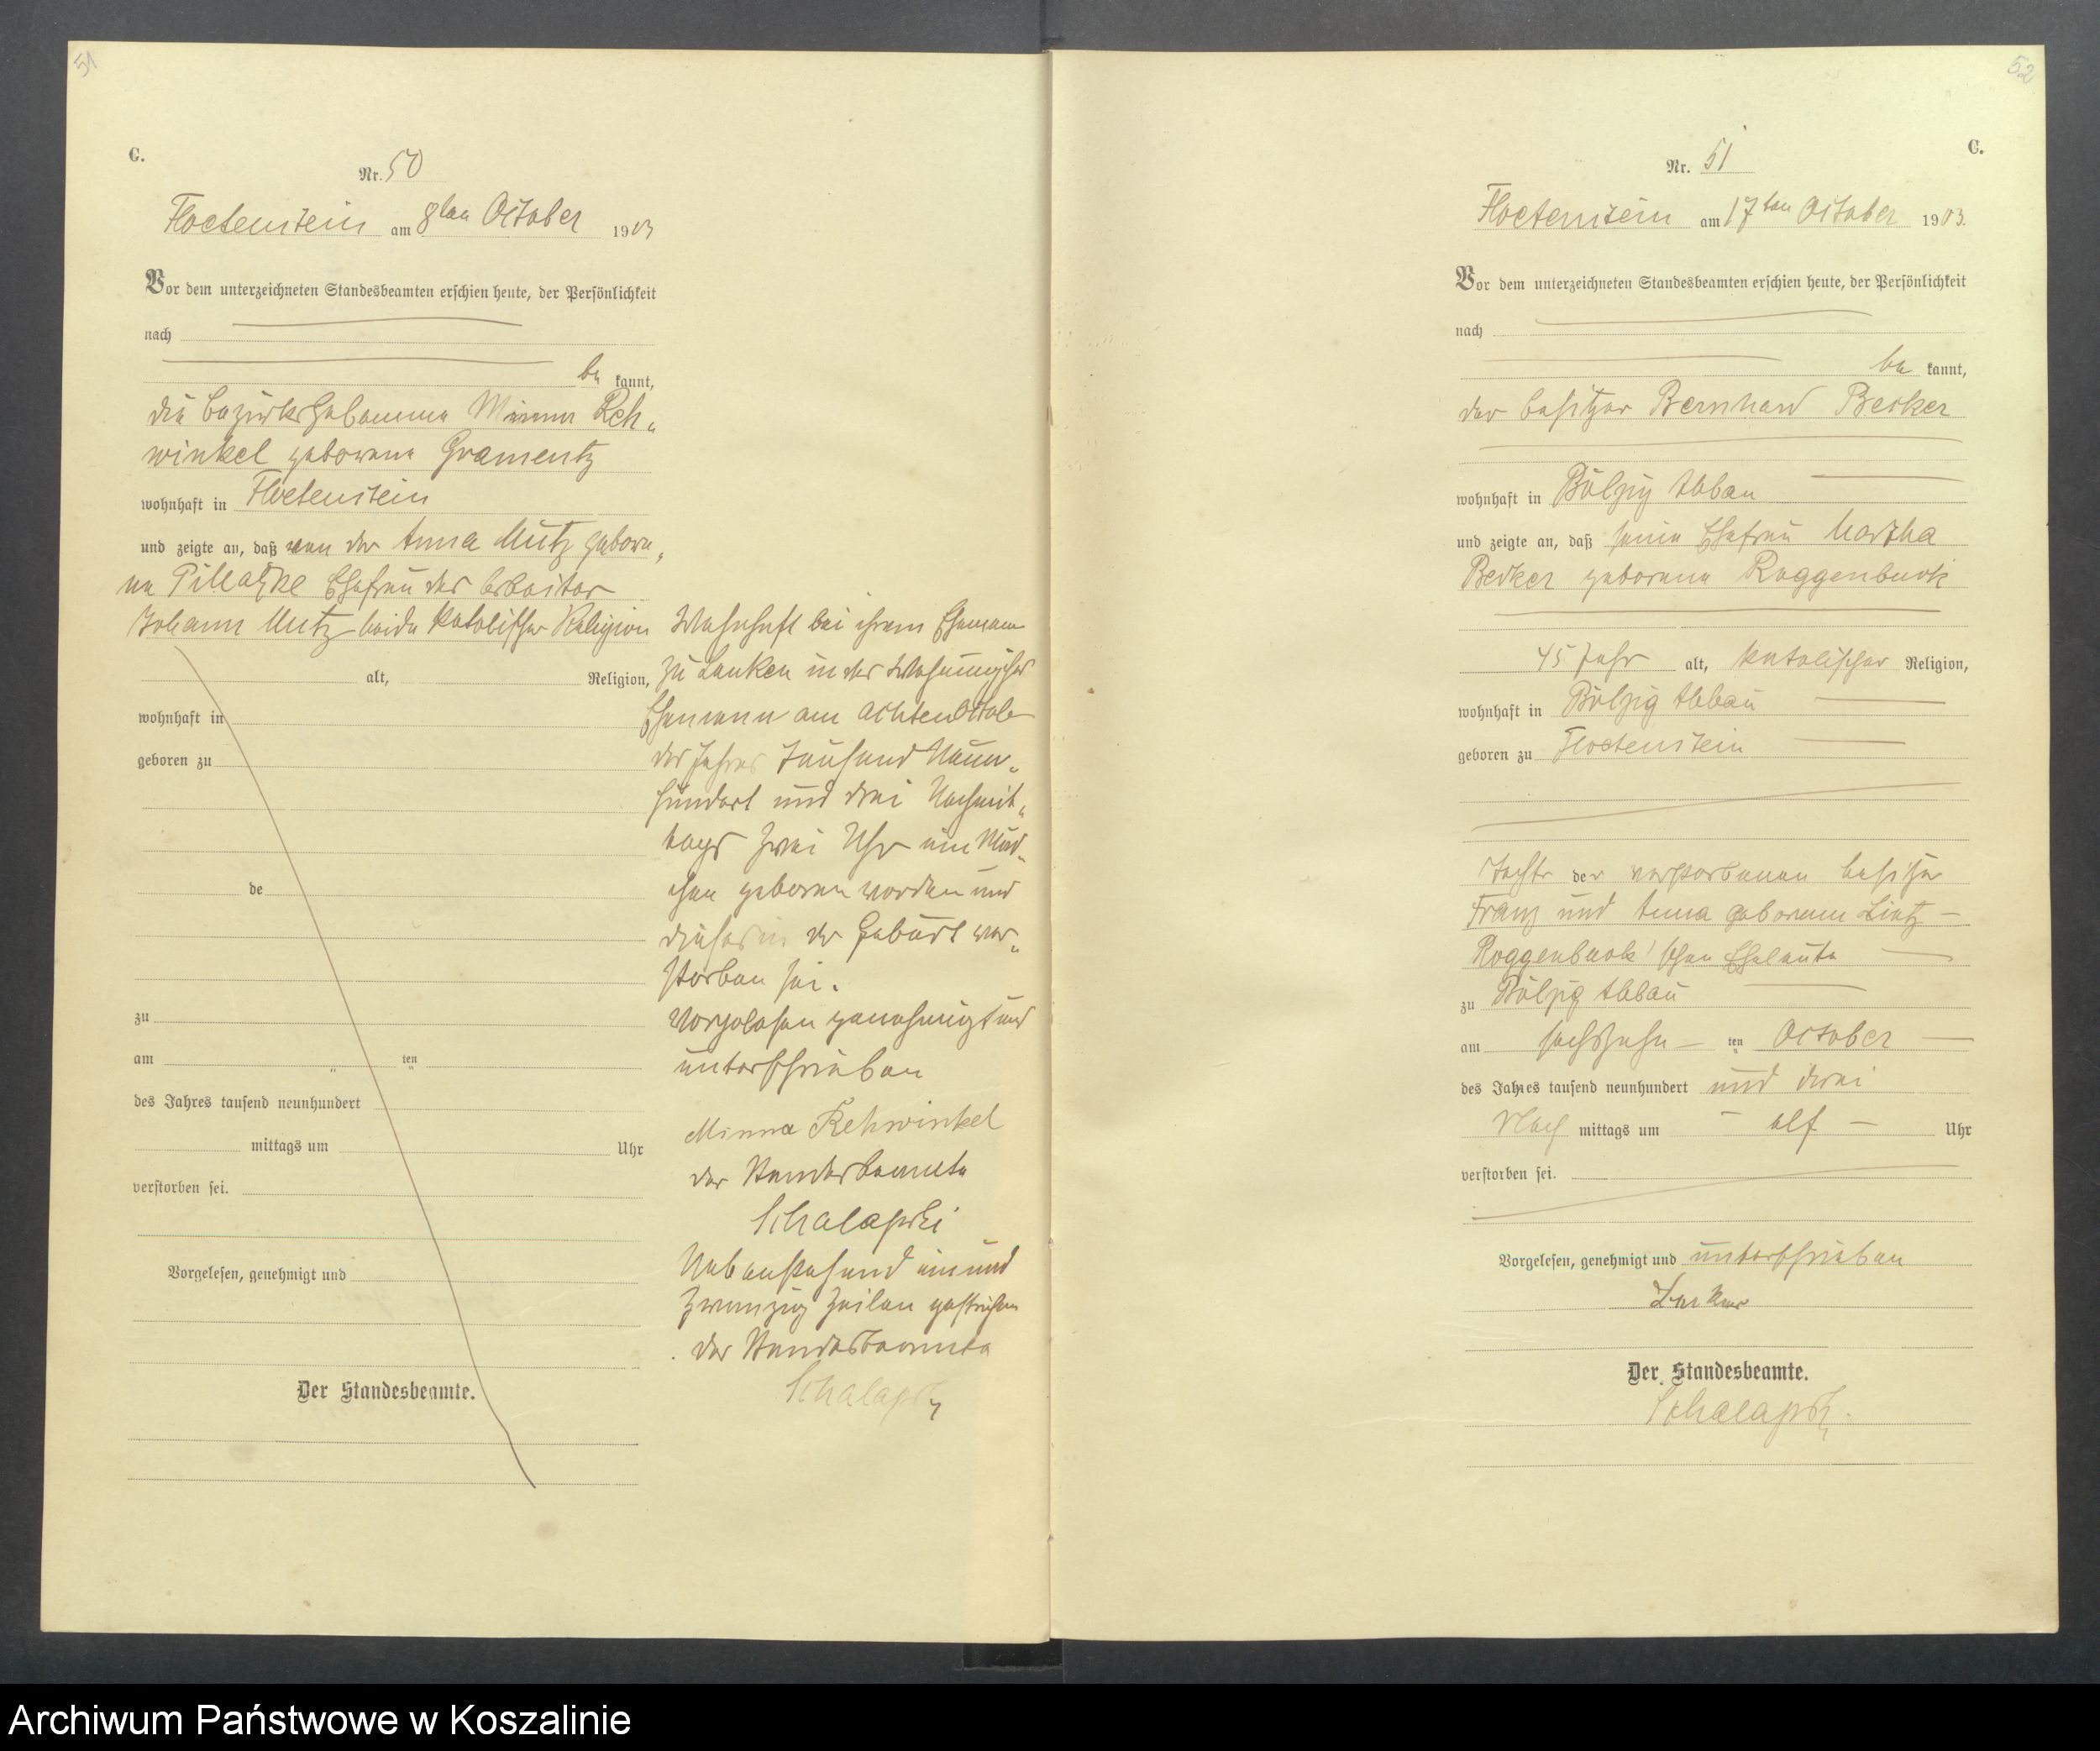 51
C.
Nr. 50
Floetenstein am 8ten October 1903
Vor dem unterzeichneten Standesbeamten erschien heute, der Persönlichkeit
nach
be kannt,
die Bezirkshebamme Minna Reh„
winkel geborene Gramentz
wohnhaft in Floetenstein
und zeigte an, daß von der Anna Mutz gebore„
ne Pillatzke Ehefrau des Arbeiter
Johann Mutz beide katolischer Religion
alt, Religion,
wohnhaft in
geboren zu
de
zu
am ten
des Jahres tausend neunhundert
mittags um Uhr
verstorben sei.
Vorgelesen, genehmigt und
Der Standesbeamte.
Wohnhaft bei ihrem Ehemann
zu Lanken in der Wohnung ihres
Ehemann am achten Octob
des Jahres Tausend Neun„
hundert und drei Nachmit„
tags zwei Uhr ein Mäd„
chen geboren worden und
dieses in der Geburt ver„
storben sei.
Vorgelesen genehmigt und
unterschrieben
Minna Rehwinkel
der Standesbeamte
Schalapski
Nebenstehend ein und
zwanzig Zeilen gestrichen
der Standesbeamte
Schalapski
52
C.
Nr. 51
Floetenstein am 17ten October 1903.
Vor dem unterzeichneten Standesbeamten erschien heute, der Persönlichkeit
nach
be kannt,
der Besitzer Bernhard Becker
wohnhaft in Bölzig Abbau
und zeigte an, daß seine Ehefrau Martha
Becker geborene Roggenbuck
45 Jahr alt, katolischer Religion,
wohnhaft in Bölzig Abbau
geboren zu Floetenstein
Tochter der verstorbenen Besitzer
Franz und Anna geborenen Lietz
Roggenbuck'schen Eheleute
zu Bölzig Abbau
am sechszehn ten October
des Jahres tausend neunhundert und drei
Nach mittags um elf Uhr
verstorben sei.
Vorgelesen, genehmigt und unterschrieben
Der Standesbeamte.
Schalapski.
Archiwum Państwowe w Koszalinie